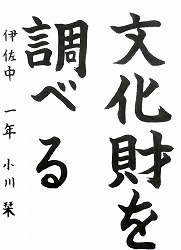 文化財を
調べる
伊佐中 一年 小川 栞